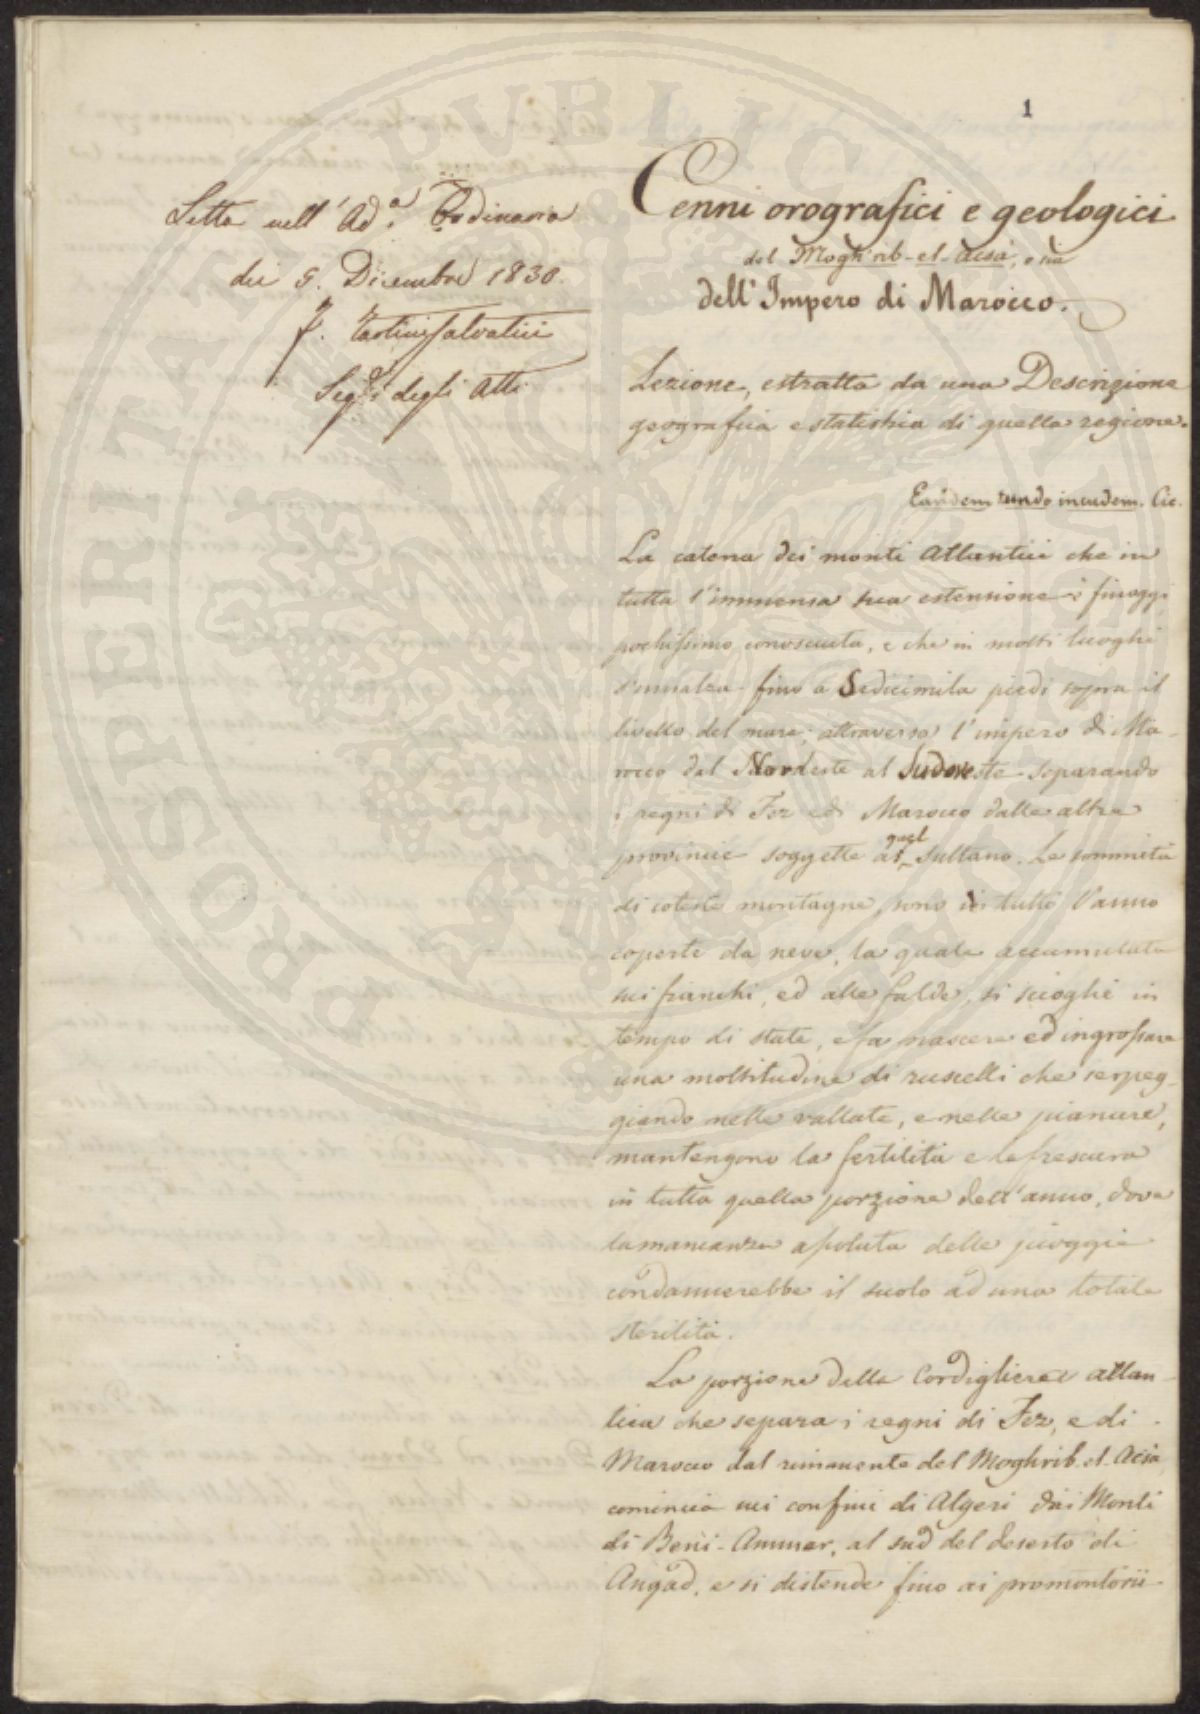 1
Letta nell' Ad.a Ordinaria
dei 5. Dicembre 1830.
f. Tartini Salvatici
Seg.o degli Atti
Cenni orografici e geologici
del Moghrib-el-Acsà, o sia
dell'Impero di Marocco.
Lezione, estratta da una Descrizione
geografica e statistica di quella regione.
Eandem tundo incudem. Cic.
La catena dei monti Atlantici che in
tutta l'immensa sua estensione è finoggi
pochissimo conosciuta, e che in molti luoghi
s'innalza fino a Sedicimila piedi sopra il
livello del mare, attraversa l'impero di Ma-
rocco dal Nordeste al Sudoveste separando
i regni di Fez e di Marocco dalle altre
provincie soggette a quel Sultano. Le sommità
di coteste montagne, sono in tutto l'anno
coperte da neve, la quale accumulata
sui fianchi, ed alle falde, si scioglie in
tempo di state, e fa nascere ed ingrossare
una moltitudine di ruscelli che serpeg-
giando nelle vallate, e nelle pianure,
mantengono la fertilità e la frescura
in tutta quella porzione dell'anno, dove
la mancanza assoluta delle pioggie
condannerebbe il suolo ad una totale
sterilità.
La porzione della Cordigliera atlan-
tica che separa i regni di Fez, e di
Marocco dal rimanente del Moghrib-el-Acsà,
comincia nei confini di Algeri dai Monti
di Beni-Ammer, al sud del deserto di
Angad, e si distende fino ai promontorii
PROSPERITATI PUBLICAE